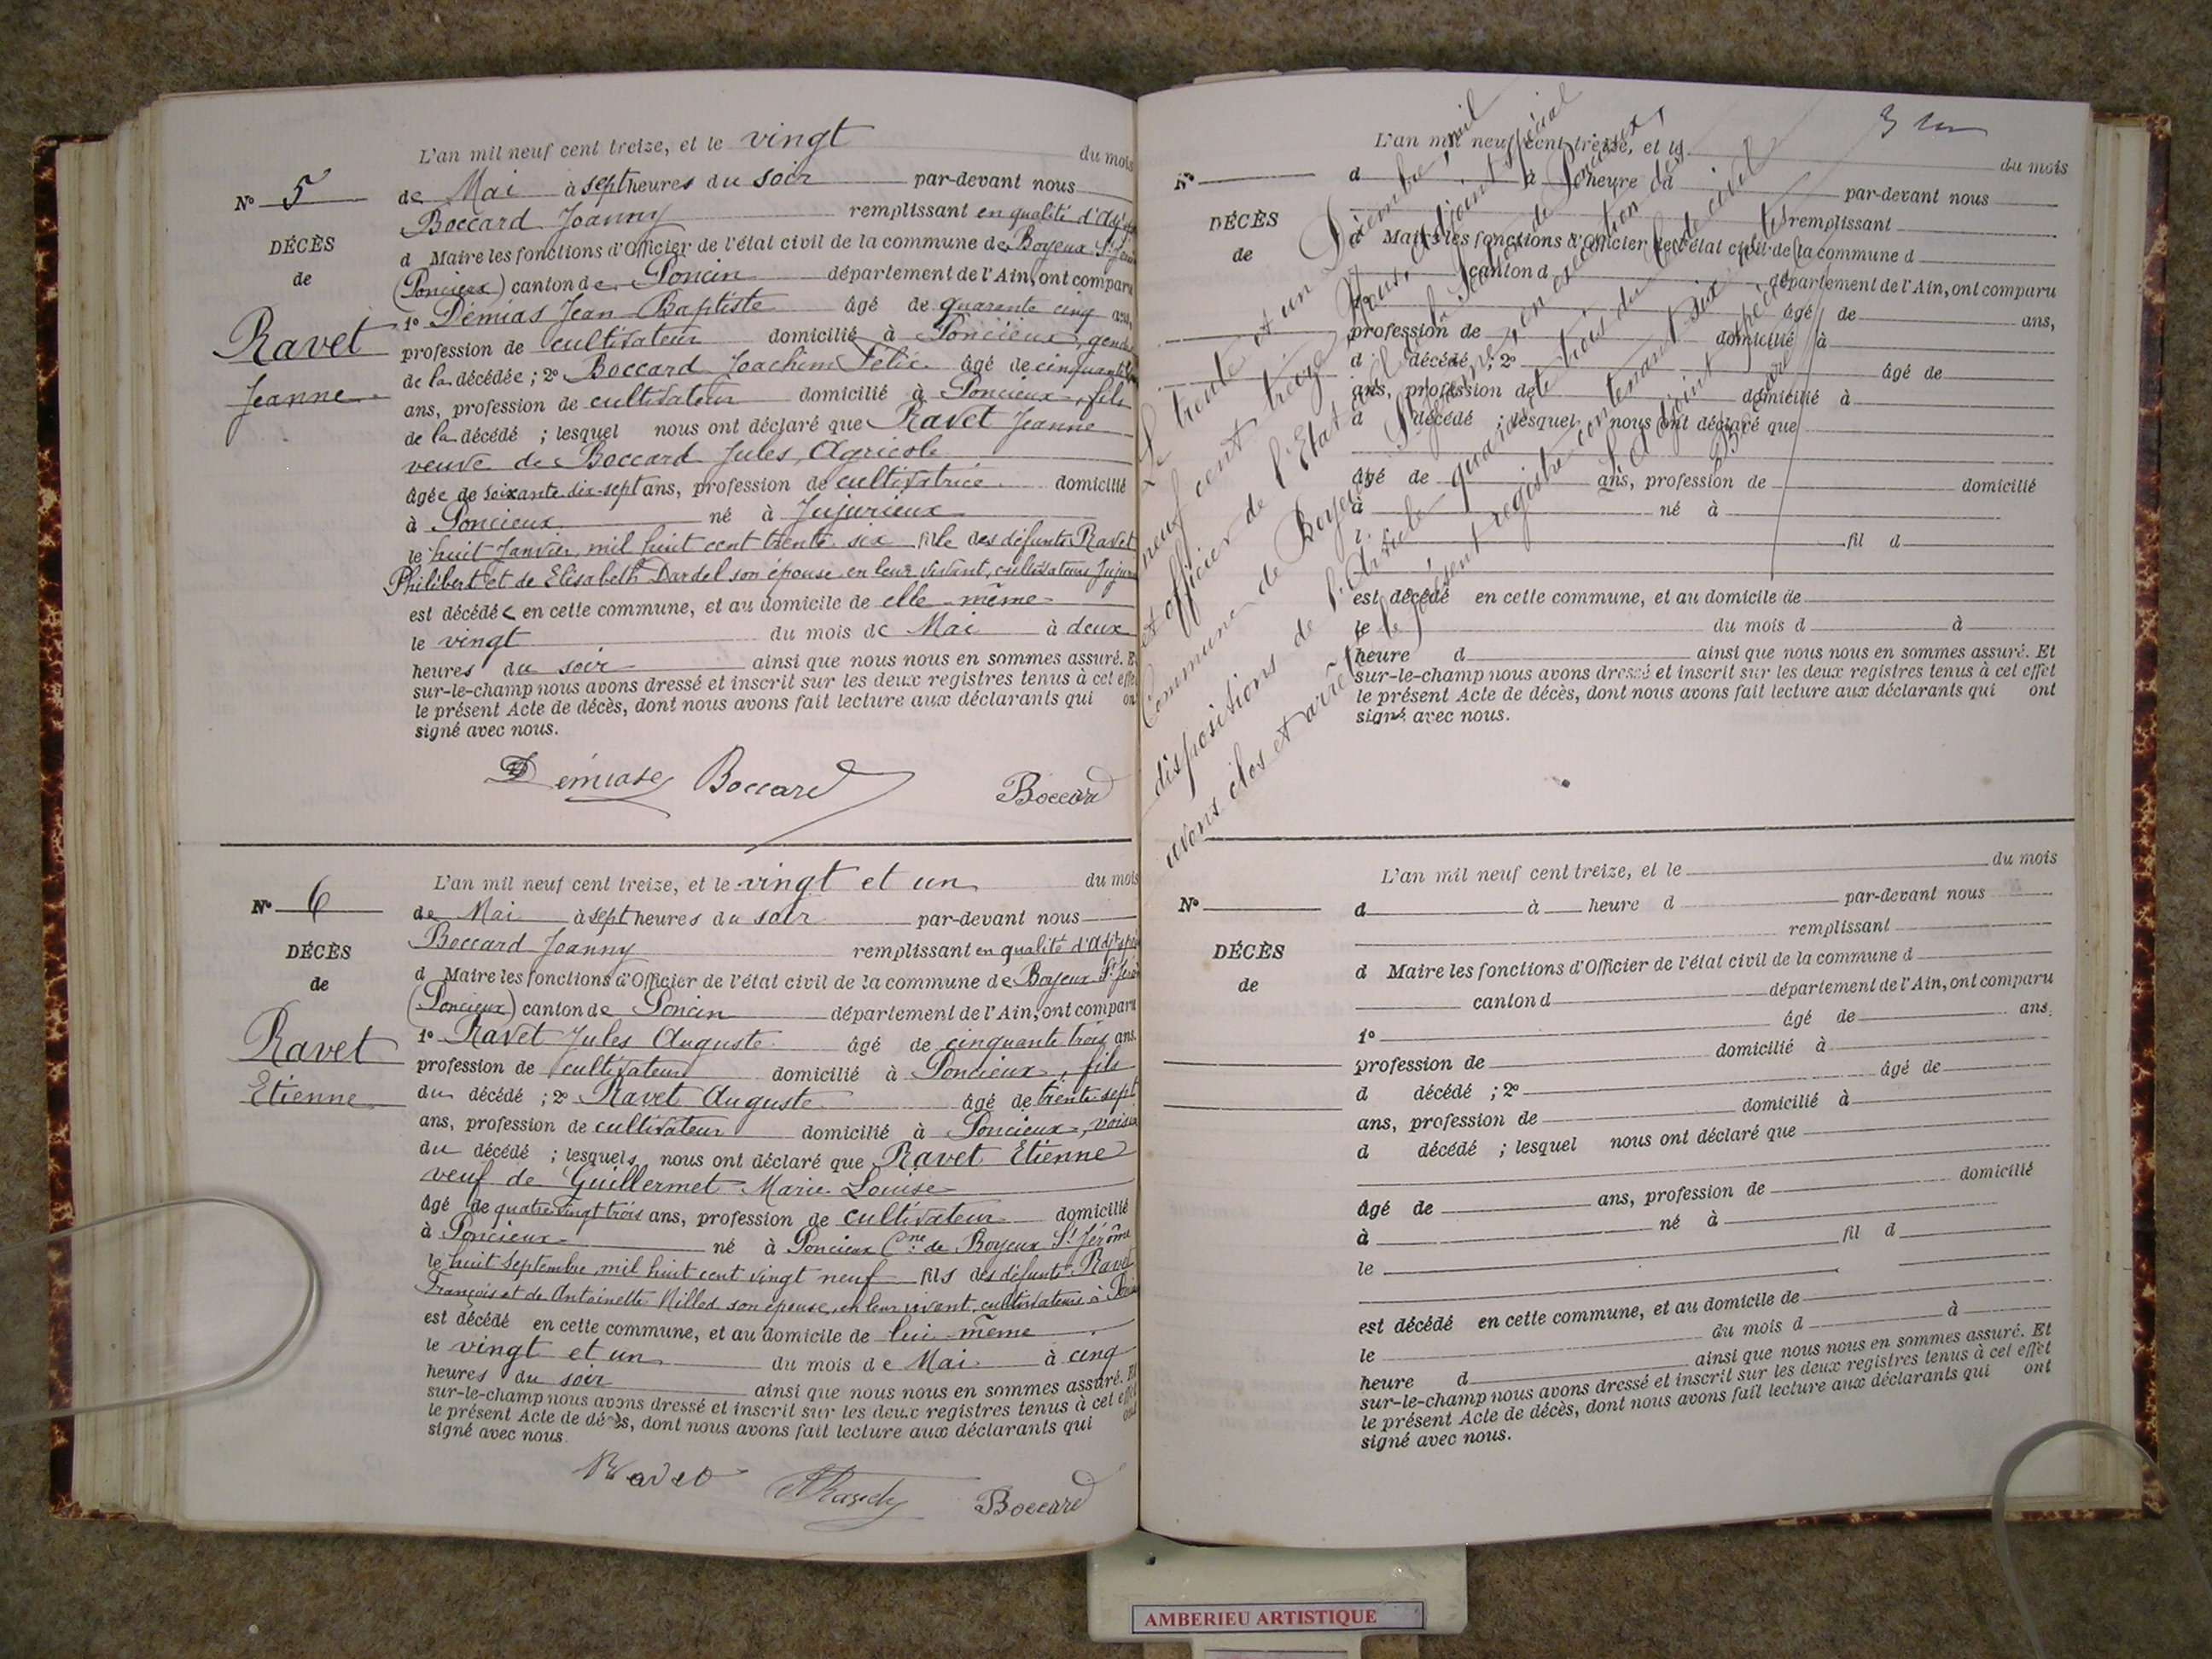 L'an mil neuf cent treize, et le vingt du mois
N° 5
de Mai à sept heures du soir par-devant nous
Boccard Joanny remplissant en qualité d'Adj
DÉCÈS
d Maire les fonctions d'Officier de l'état civil de la commune de Boyeux St
de
(Poncieux) canton de Poncin département de l'Ain, ont comparu
1° Démias Jean Baptiste âgé de quarante cinq ans,
Ravet
profession de cultivateur domicilié à Poncieux, gendre
de la décédée ; 2° Boccard Joachim Félix âgé de cinquante
Jeanne
ans, profession de cultivateur domicilié à Poncieux, fils
de la décédé ; lesquel nous ont déclaré que Ravet Jeanne
veuve de Boccard Jules, Agricole
âgée de soixante dix-sept ans, profession de cultivatrice domicilié
à Poncieux né à Jujurieux
le huit Janvier mil huit cent trente six fille des défunts Ravet
Philibert et de Elisabeth Dardel son épouse en leur vivant, cultivateurs Jujur
est décédée en cette commune, et au domicile de elle-même
le vingt du mois de Mai à deux
heures du soir ainsi que nous nous en sommes assuré. Et
sur-le-champ nous avons dressé et inscrit sur les deux registres tenus à cet effet
le présent Acte de décès, dont nous avons fait lecture aux déclarants qui ont
signé avec nous.
Demiase Boccard Boccard
L'an mil neuf cent treize, et le vingt et un du mois
N° 6
de Mai à sept heures du soir par-devant nous
Boccard Joanny remplissant en qualité d'Adjt
DÉCÈS
d Maire les fonctions d'Officier de l'état civil de la commune de Boyeux St
de
(Poncieux) canton de Poncin département de l'Ain, ont comparu
1° Ravet Jules Auguste âgé de cinquante trois ans.
Ravet
profession de cultivateur domicilié à Poncieux, fils
du décédé ; 2° Ravet Auguste âgé de trente-sept
Etienne
ans, profession de cultivateur domicilié à Poncieux, voisin
du décédé ; lesquels nous ont déclaré que Ravet Etienne
veuf de Guillermet Marie Louise
âgé de quatre vingt trois ans, profession de cultivateur domicilié
à Poncieux né à Poncieux Cne de Boyeux St Jérôme
le huit Septembre mil huit cent vingt neuf fils des défunts Ravet
François et de Antoinette Millod son épouse, en leur vivant, cultivateurs à
est décédé en cette commune, et au domicile de lui-même
le vingt et un du mois de Mai à cinq
heures du soir ainsi que nous nous en sommes assuré. Et
sur-le-champ nous avons dressé et inscrit sur les deux registres tenus à cet effet
le présent Acte de décès, dont nous avons fait lecture aux déclarants qui ont
signé avec nous.
Ravet Boccard
Le trente et un Décembre, mil
neuf cent treize Nous, adjoint spécial
et officier de l'Etat civil de la Section de Poncieux,
Commune de Boyeux St Jérôme, en exécution des
dispositions de l'Article quarante trois du Code civil
avons clos et arrêté le présent registre contenant six actes
L'Adjoint spécial
Boccard
L'an mil neuf cent treize, et le du mois
N°
d à heure d par-devant nous
remplissant
DÉCÈS
d Maire les fonctions d'Officier de l'état civil de la commune d
de
canton d département de l'Ain, ont comparu
1° âgé de ans,
profession de domicilié à
d décédé ; 2° âgé de
ans, profession de domicilié à
d décédé ; lesquel nous ont déclaré que
âgé de ans, profession de domicilié
à né à
le fil d
est décédé en cette commune, et au domicile de
le du mois d à
heure d ainsi que nous nous en sommes assuré. Et
sur-le-champ nous avons dressé et inscrit sur les deux registres tenus à cet effet
le présent Acte de décès, dont nous avons fait lecture aux déclarants qui ont
signé avec nous.
L'an mil neuf cent treize, et le du mois
N°
d à heure d par-devant nous
remplissant
DÉCÈS
d Maire les fonctions d'Officier de l'état civil de la commune d
de
canton d département de l'Ain, ont comparu
1° âgé de ans.
profession de domicilié à
d décédé ; 2° âgé de
ans, profession de domicilié à
d décédé ; lesquel nous ont déclaré que
âgé de ans, profession de domicilié
à né à
le fil d
est décédé en cette commune, et au domicile de
le du mois d à
heure d ainsi que nous nous en sommes assuré. Et
sur-le-champ nous avons dressé et inscrit sur les deux registres tenus à cet effet
le présent Acte de décès, dont nous avons fait lecture aux déclarants qui ont
signé avec nous.
AMBERIEU ARTISTIQUE